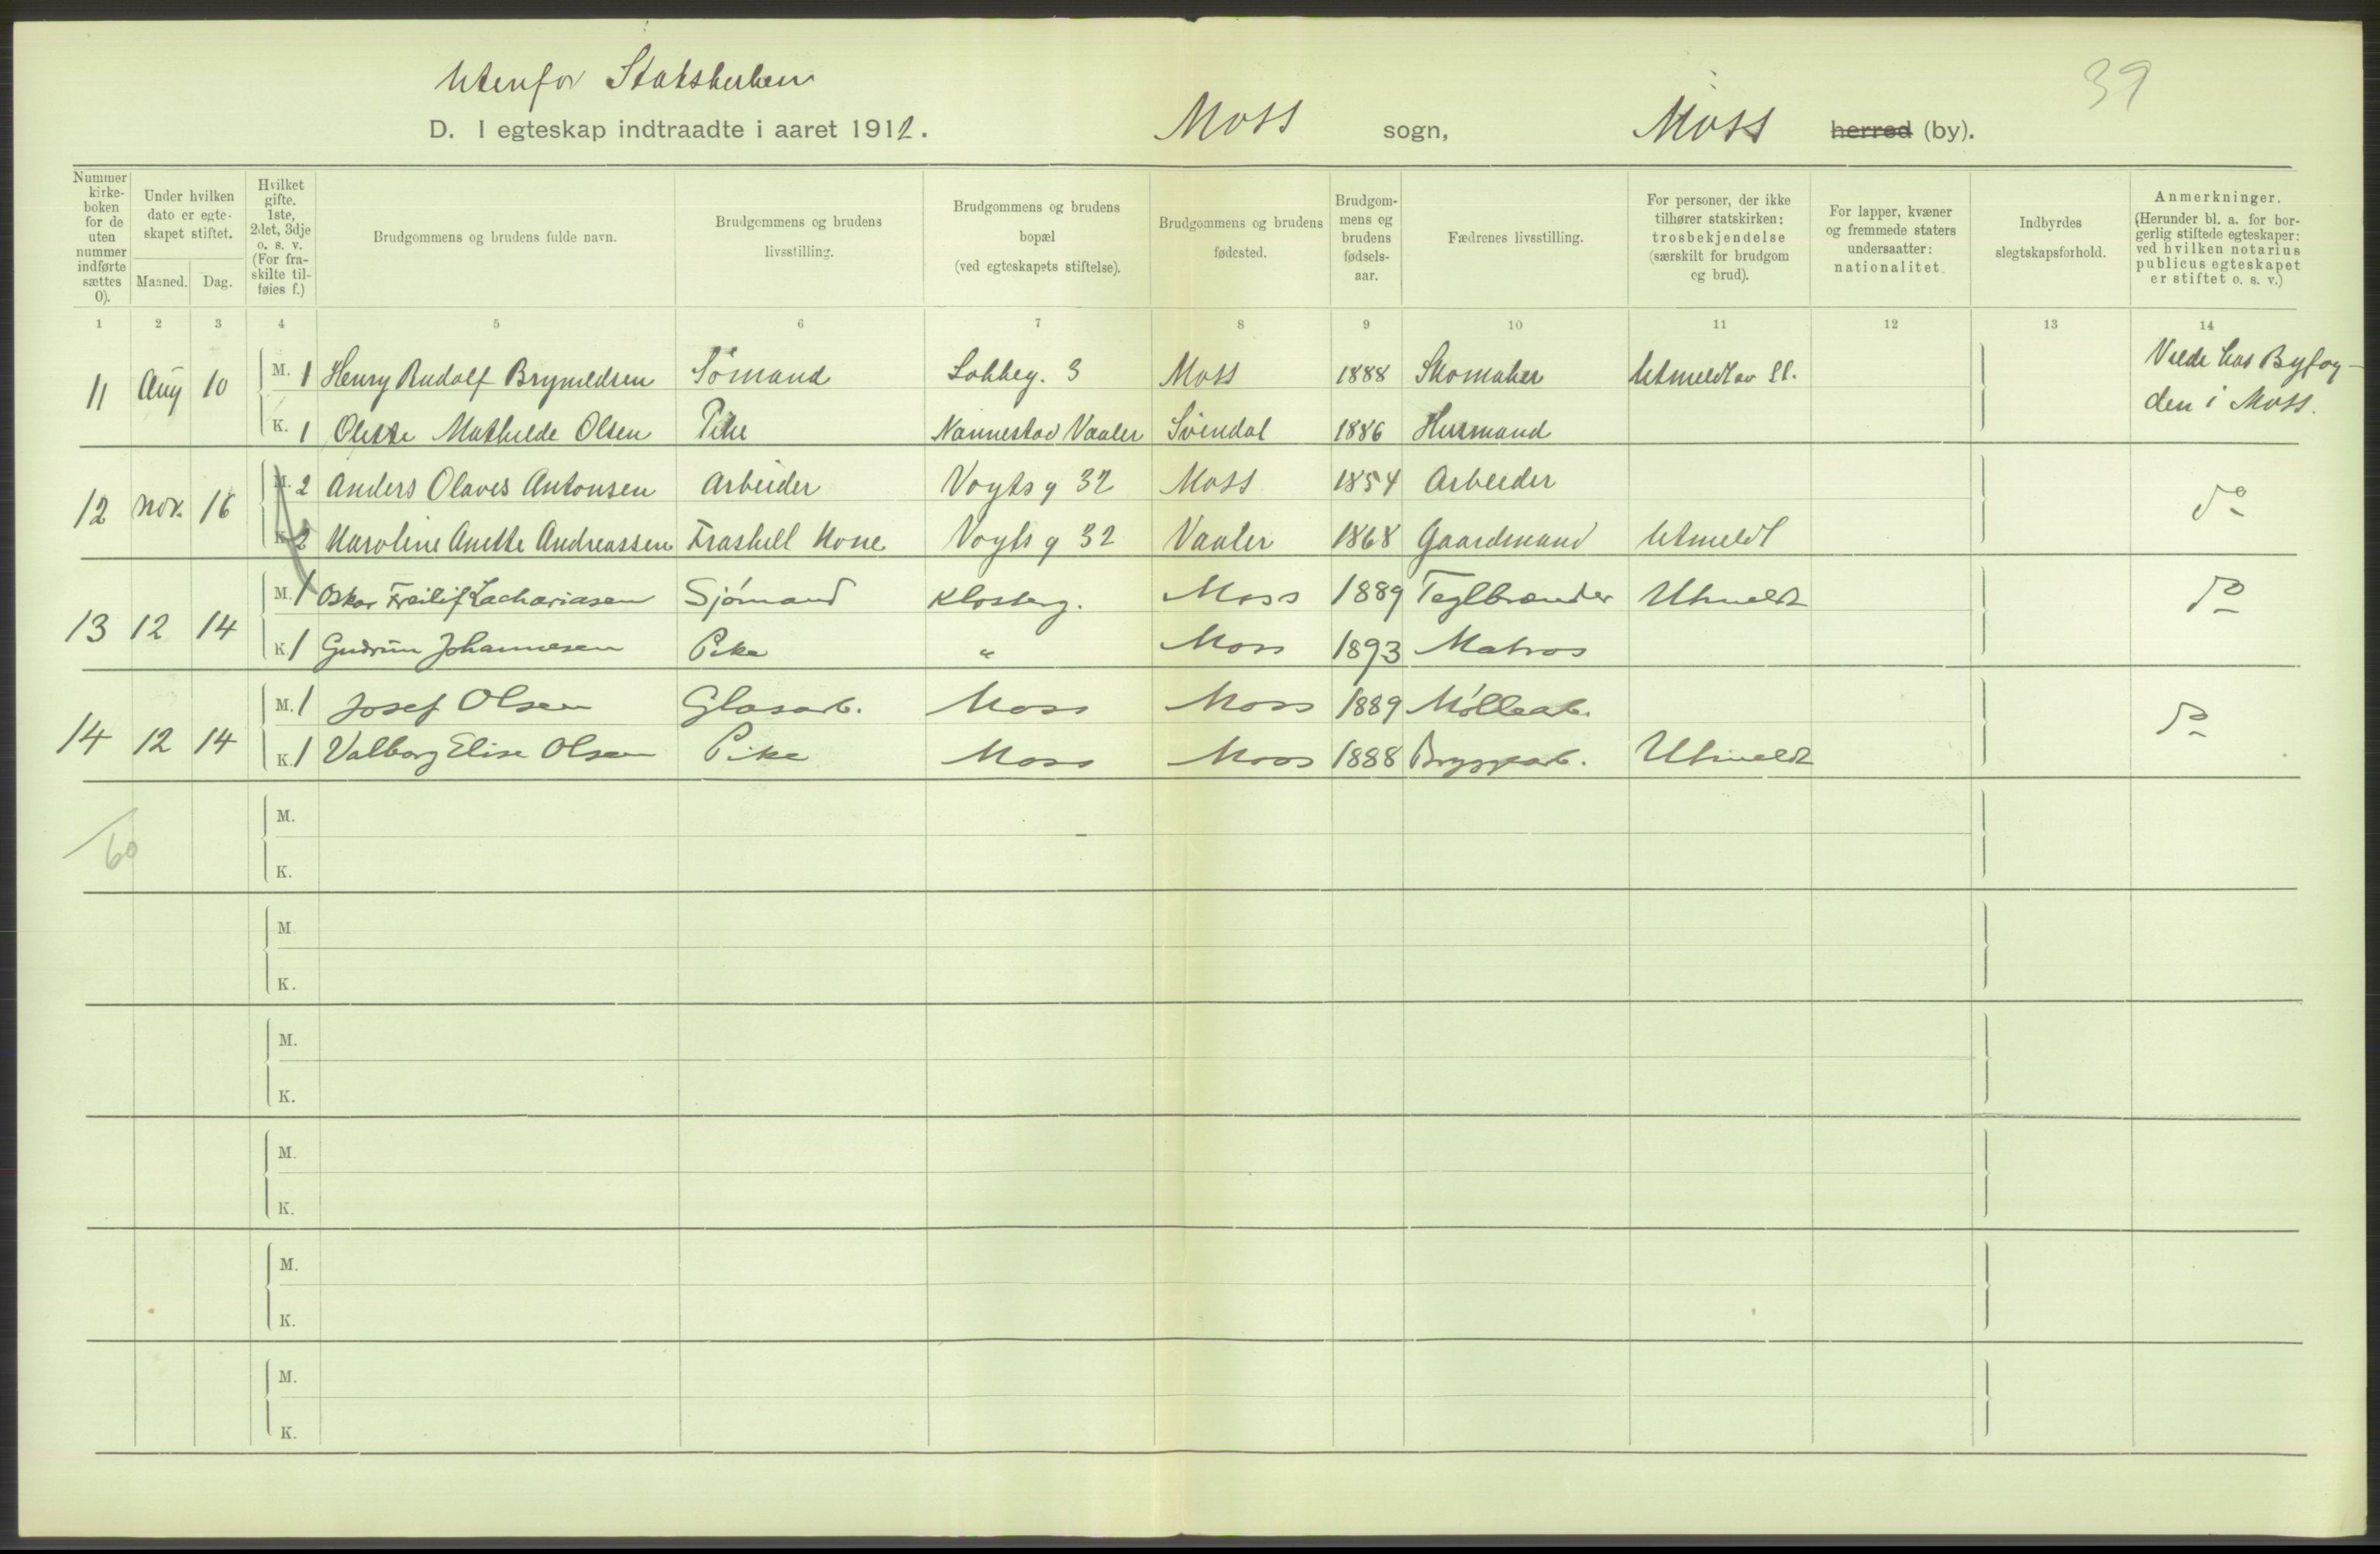 39
Utenfor Statskirken
D. I egteskap indtraadte i aaret 1912. Moss sogn, Moss herred (by).
Nummer kirke-boken for de uten nummer indførte sættes 0). Under hvilken dato er egte-skapet stiftet. Maaned. Dag. Hvilket gifte. 1ste, 2det, 3dje o. s. v. (For fra-skilte til-føies f.) Brudgommens og brudens fulde navn. Brudgommens og brudens livsstilling. Brudgommens og brudens bopæl (ved egteskapets stiftelse). Brudgommens og brudens fødested. Brudgom-mens og brudens fødsels-aar. Fædrenes livsstilling. For personer, der ikke tilhører statskirken: trosbekjendelse (særskilt for brudgom og brud). For lapper, kvæner og fremmede staters undersaatter: nationalitet. Indbyrdes slegtskapsforhold. Anmerkninger. (Herunder bl. a. for bor-gerlig stiftede egteskaper: ved hvilken notarius publicus egteskapet er stiftet o. s. v.)
1 2 3 4 5 6 7 8 9 10 11 12 13 14
11 Aug 10 M. 1 Henry Rudolf Brynildsen Sømand 3 Moss 1888 Skomaker Utmeldt av St. Viede hos Byfog-
K. 1 Olette Mathilde Olsen Pike Nannestad Vaaler Svindal 1886 Husmand den i Moss.
12 Nov. 16 M. 2 Anders Olaves Antonsen Arbeider Vogts g 32 Moss 1854 Arbeider do
K. 2 Karoline Anette Andreassen Fraskill Kone Vogts g 32 Vaaler 1868 Gaardmand Utmeldt
13 12 14 M. 1 Oskar Freilif Zachariasen Sjømand Klosterg. Moss 1889 Teglbrænder Utmeldt do
K. 1 Gudrun Johannesen Pike " Moss 1893 Matros
14 12 14 M. 1 Josef Olsen Glasarb. Moss Moss 1889 Møllearb. do
K. 1 Valborg Elise Olsen Pike Moss Moss 1888 Bryggearb. Utmeldt
M.
60
K.
M.
K.
M.
K.
M.
K.
M.
K.
M.
K.